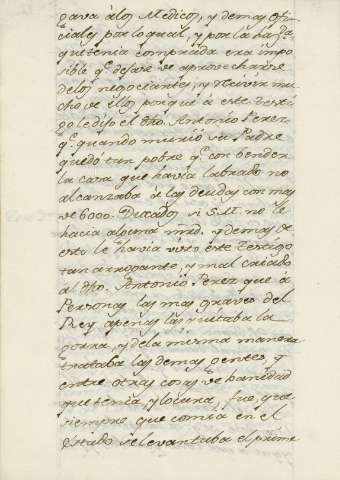 pava álos Medicos, y demas Ofi-
ciales por lo qual, y por la haz.da
que tenia comprada era impo
sible q.e dejase de aprovecharse
delos negociantes, y vivir mu
cho de ellos porque á este testi
go le dijo el dho. Antonio Perez
q.e quando murió su Padre
quedó tan pobre q.e con bender
la casa que havia labrado no
alcanzaba á las deudas con mas
de 6000. Ducados si S.M. no le
hacia alguna mrd. y demas de
esto le havia visto este testigo
tan arrogante, y mal criado
al dho. Antonio Perez que á
Personas las mas graves del
Rey apenas las quitaba la
gorra, y dela misma manera
trataba las demas gentes, y
entre otras cosas de banidad
que tenia, y locura, fue, que
siempre que comia en el
Estado se levantaba el prime